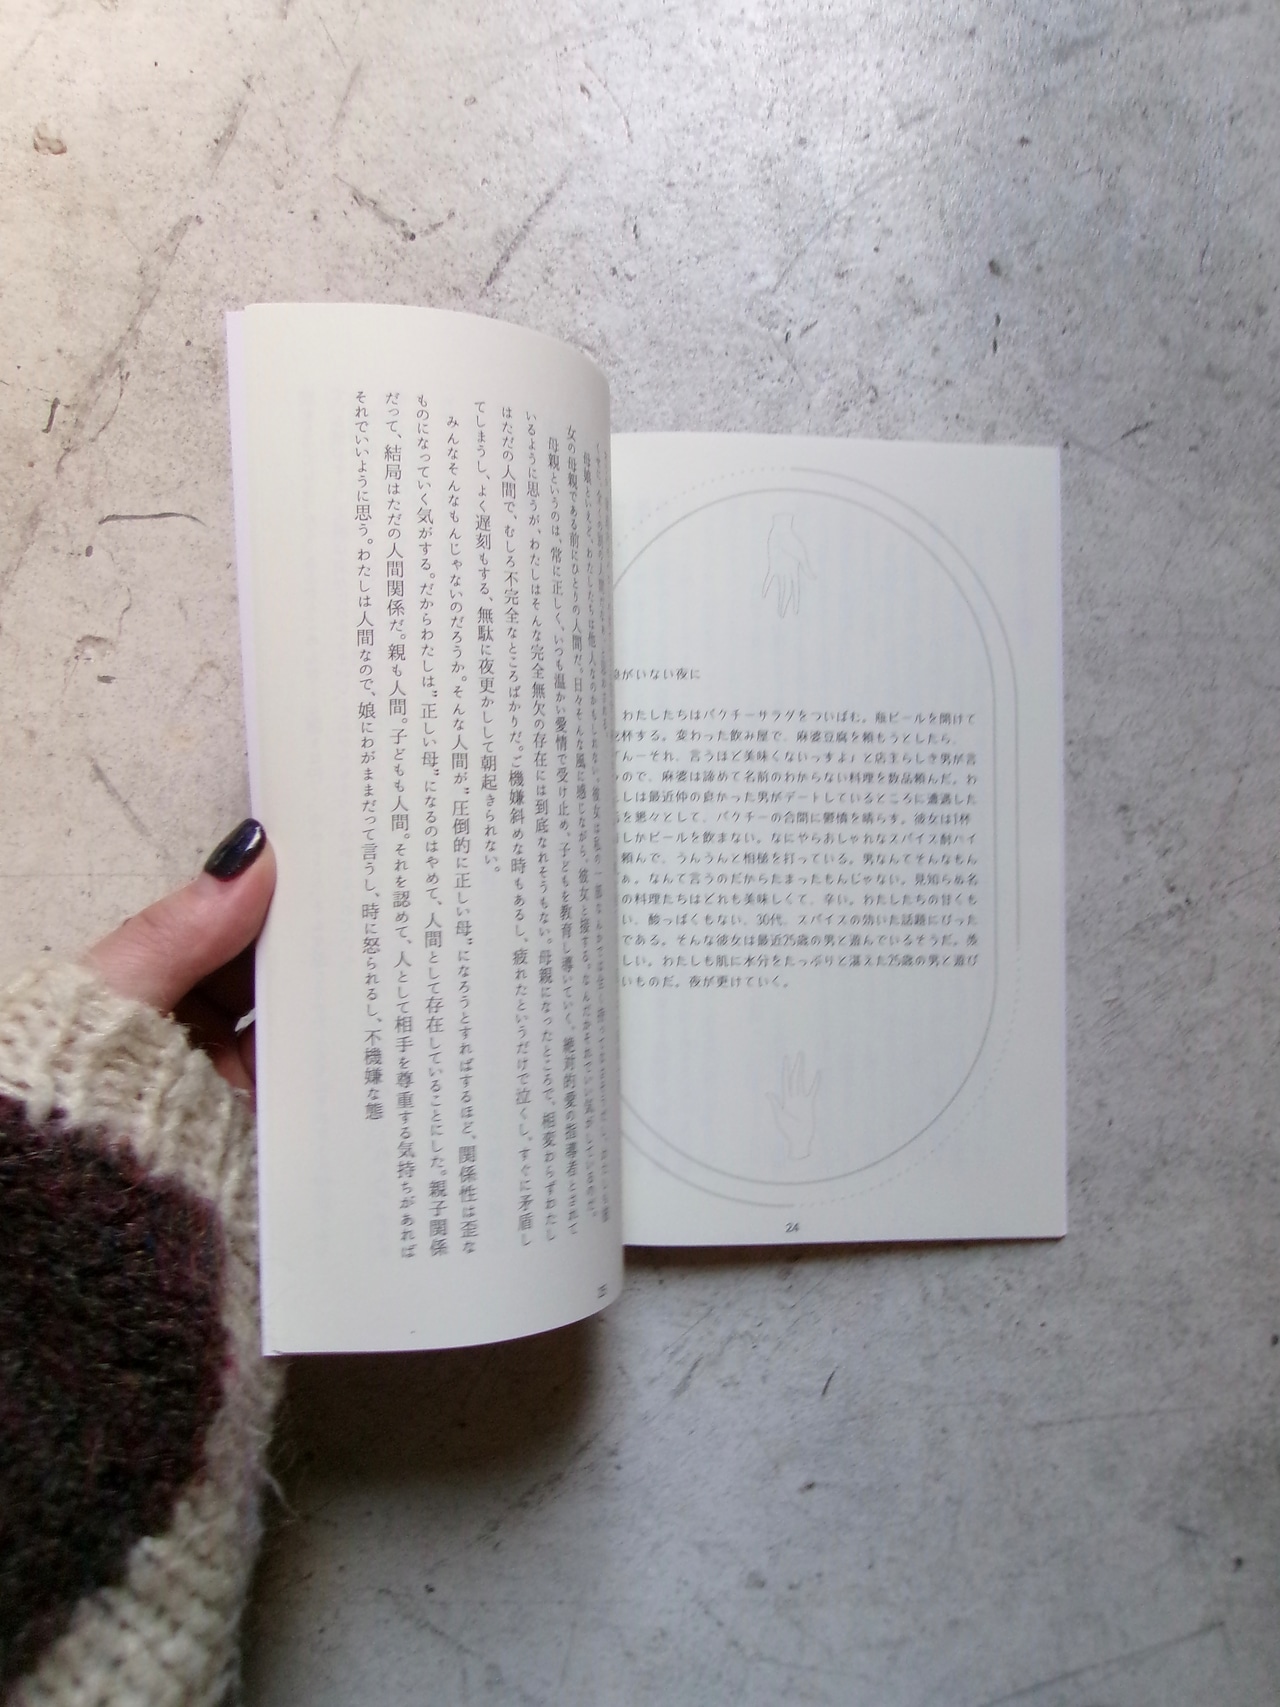 がいない夜に
わたしたちはパクチーサラダをついばむ。瓶ビールを開けて
杯する。変わった飲み屋で、麻婆豆腐を頼もうとしたら、
「んーそれ、言うほど美味くないっすよ」と店主らしき男が言
ので、麻婆は諦めて名前のわからない料理を数品頼んだ。わ
しは最近仲の良かった男がデートしているところに遭遇した
を悪々として、パクチーの合間に鬱憤を晴らす。彼女は1杯
しかビールを飲まない。なにやらおしゃれなスパイス酎ハイ
頼んで、うんうんと相槌を打っている。男なんてそんなもん
ぁ。なんて言うのだからたまったもんじゃない。見知らぬ名
の料理たちはどれも美味しくて、辛い。わたしたちの甘くも
い、酸っぱくもない、30代、スパイスの効いた話題にぴった
である。そんな彼女は最近25歳の男と遊んでいるそうだ。羨
しい。わたしも肌に水分をたっぷりと湛えた25歳の男と遊び
いものだ。夜が更けていく。
24
母娘といえど、わたしたちは他人なのかもしれない。彼女は私の一部なんかでは
女の母親である前にひとりの人間だ。日々そんな風に感じながら、彼女と接する。なんだかそれでいい気がしているのだ。
母親というのは、常に正しく、いつも温かい愛情で受け止め、子どもを教育し導いていく。絶対的愛の指導者とされて
いるように思うが、わたしはそんな完全無欠の存在には到底なれそうもない。母親になったところで、相変わらずわたし
はただの人間で、むしろ不完全なところばかりだ。ご機嫌斜めな時もあるし、疲れたというだけで泣くし、すぐに矛盾し
てしまうし、よく遅刻もする、無駄に夜更かしして朝起きられない。
みんなそんなもんじゃないのだろうか。そんな人間が〝圧倒的に正しい母〟になろうとすればするほど、関係性は歪な
ものになっていく気がする。だからわたしは〝正しい母〟になるのはやめて、人間として存在していることにした。親子関係
だって、結局はただの人間関係だ。親も人間。子どもも人間。それを認めて、人として相手を尊重する気持ちがあれば
それでいいように思う。わたしは人間なので、娘にわがままだって言うし、時に怒られるし、不機嫌な態
25